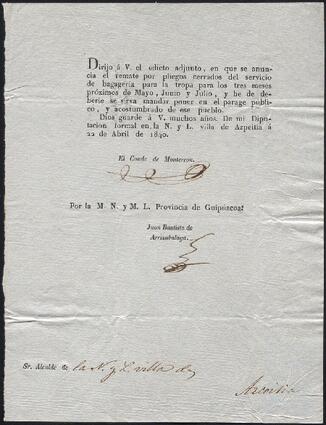 Dirijo á V. el edicto adjunto, en que se anun-
cia el remate por pliegos cerrados del servicio
de bagageria para la tropa para los tres meses
próximos de Mayo, Junio y Julio, y he de de-
berle se sirva mandar poner en el parage públi-
co, y acostumbrado de ese pueblo.
Dios guarde á V. muchos años. De mi Dipu-
tacion formal en la N. y L. villa de Azpeitia á
22 de Abril de 1840.
El Conde de Monterron.
Por la M. N. y M. L. Provincia de Guipúzcoa:
Juan Bautista de
Arrizabalaga.
Sr. Alcalde de la N. y L. villa de
Azcoitia